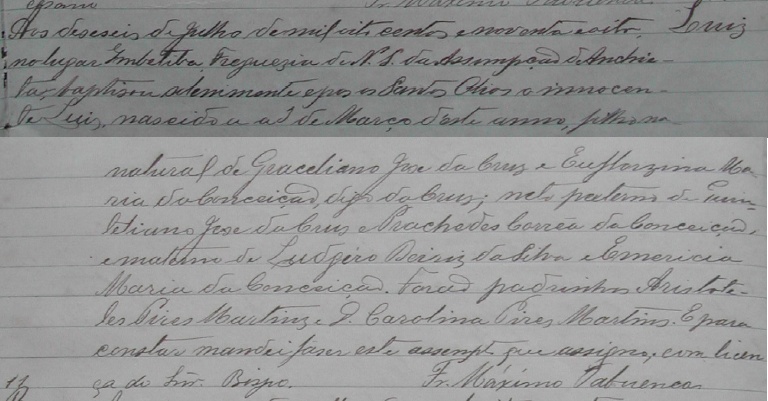 Aos deseseis de Julho de mil oito centos e noventa e oito, Luiz
no lugar Imbetiba, Freguezia de N. S. da Assumpçaõ de Anchie-
ta, baptisou solemnmente e pos os Santos Oleos o innocen-
te Luiz, nascido a de Março d'este anno, filho na-
natural de Graceliano Jose da Cruz e Euflorzina Ma-
ria da Conceiçaõ, digo da Cruz; neto paterno de Quin-
tetiano Jose da Cruz e Prachedes Corrêa da Conceiçaõ,
e materno de Ludgéro da Silva e Emericia
Maria da Conceiçaõ. Foraõ padrinhos Aristote-
les Pires Martins e D. Carolina Pires Martins. E para
constar mandei faser este assempto que assigno, com licen
ça do Snr. Bispo. Fr. Máximo Tabuenca